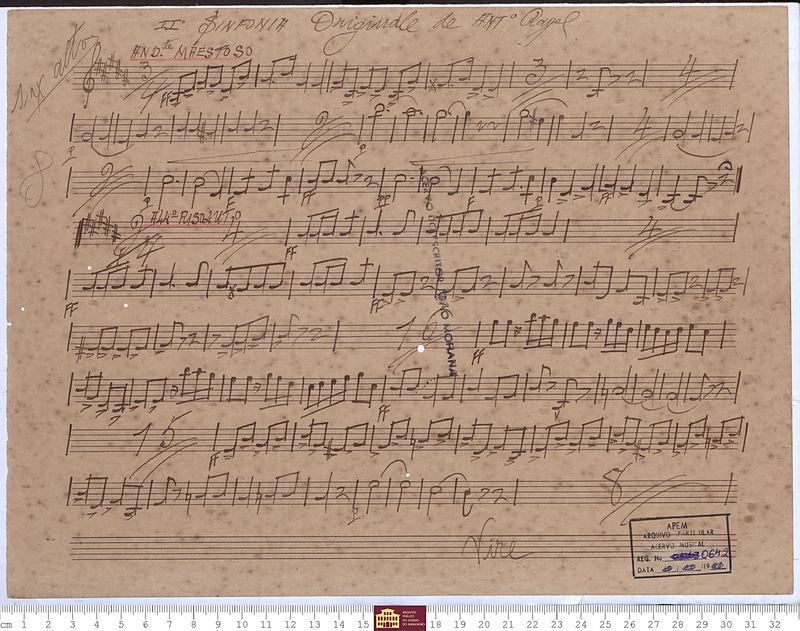 IIª SINFONIA Originale de ANTº Rayol
AND.te MAESTOSO
3 FF 3 4
2 4
8 2 F FF PP F FF
ALLº 2/4 4 FF 4
FF FF
16 FF
FF
15 FF
8
Vire
ACERVO JOÃO MOHANA
APEM
ARQUIVO PARTICULAR
ACERVO MUSICAL
REG. No 0642
DATA 19
cm 1 2 3 4 5 6 7 8 9 10 11 12 13 14 15 17 18 19 20 21 22 23 24 25 26 27 28 29 30 31 32
ARQUIVO PÚBLICO DO ESTADO DO MARANHÃO